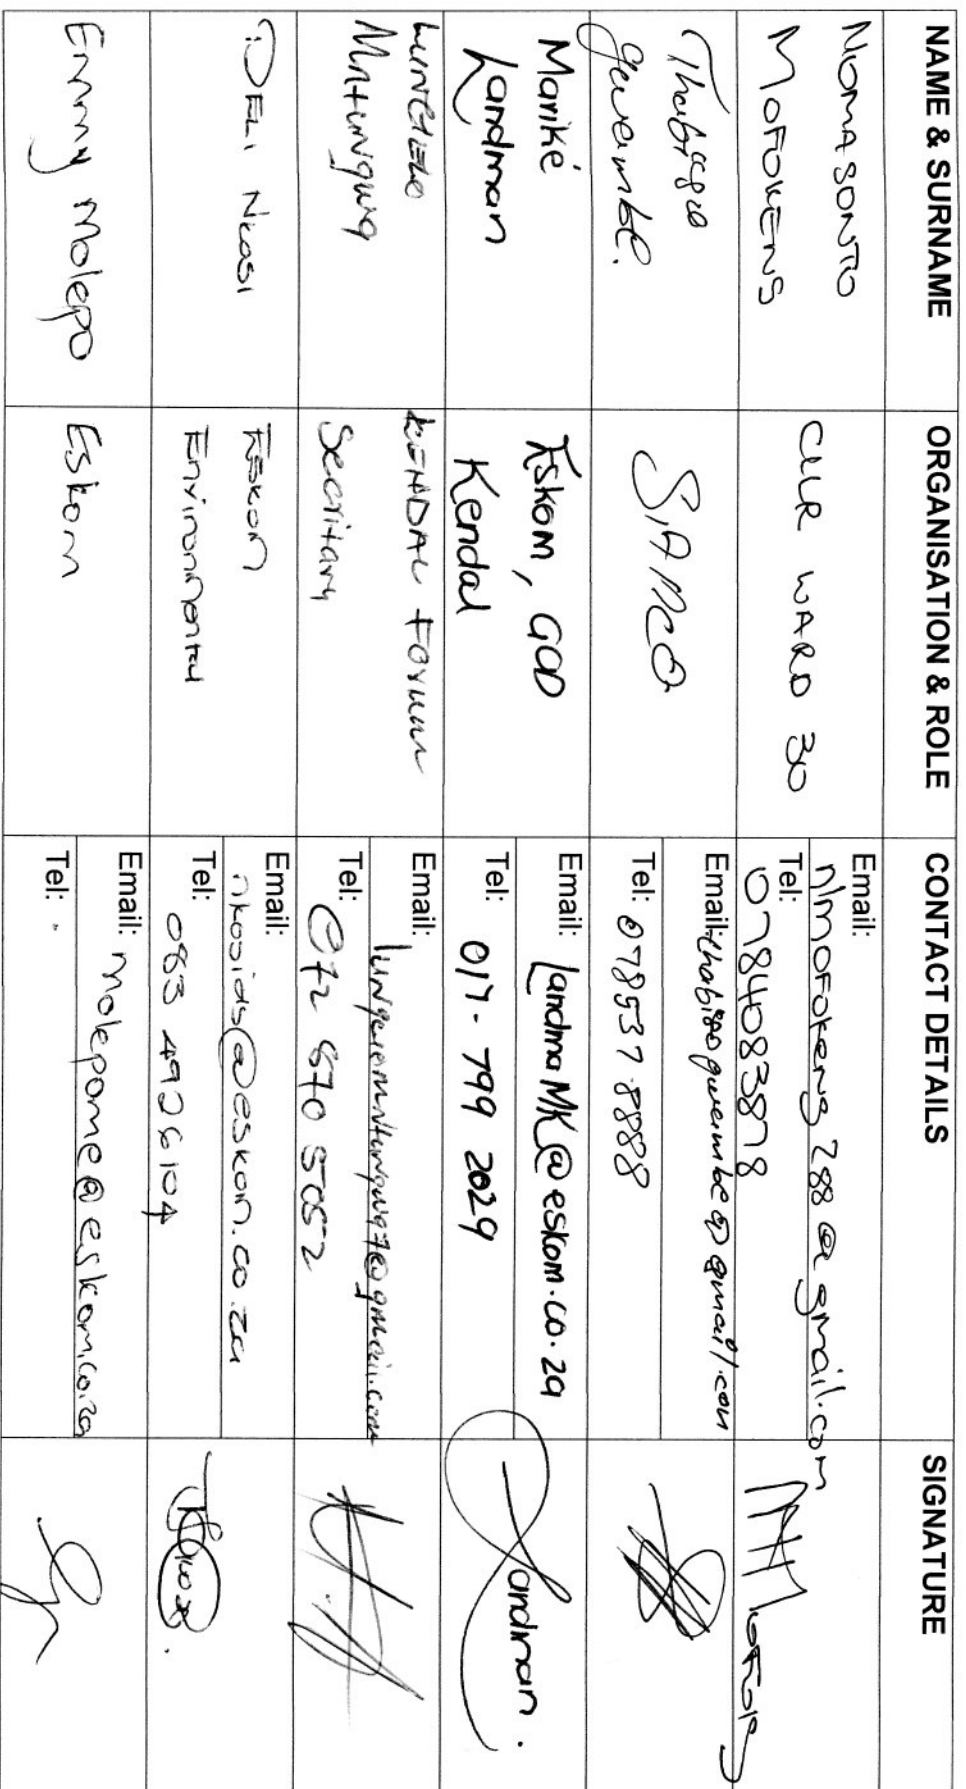 NAME & SURNAME
ORGANISATION & ROLE
CONTACT DETAILS
SIGNATURE
NOMASONTO
MOFOKENG
CLLR WARD 30
Email:
nlmofokeng288@gmail.com
Tel:
0784083878
Thabiso
Gwembe.
SAMCO
Email: thabisogwembe@gmail.com
Tel: 078537 8888
Mariké
Landman
Eskom, GOD
Kendal
Email: LandmaMK@eskom.co.za
Tel: 017-799 2029
Landman.
LUNGELO
KENDAL Forum
Secritary
Email:
Tel: 072 870 5052
DELI Nkosi
Eskom
Environmental
Email:
nkosids@eskom.co.za
Tel:
083 4926104
Emmy Molepo
Eskom
Email: molepome@eskom.co.za
Tel: